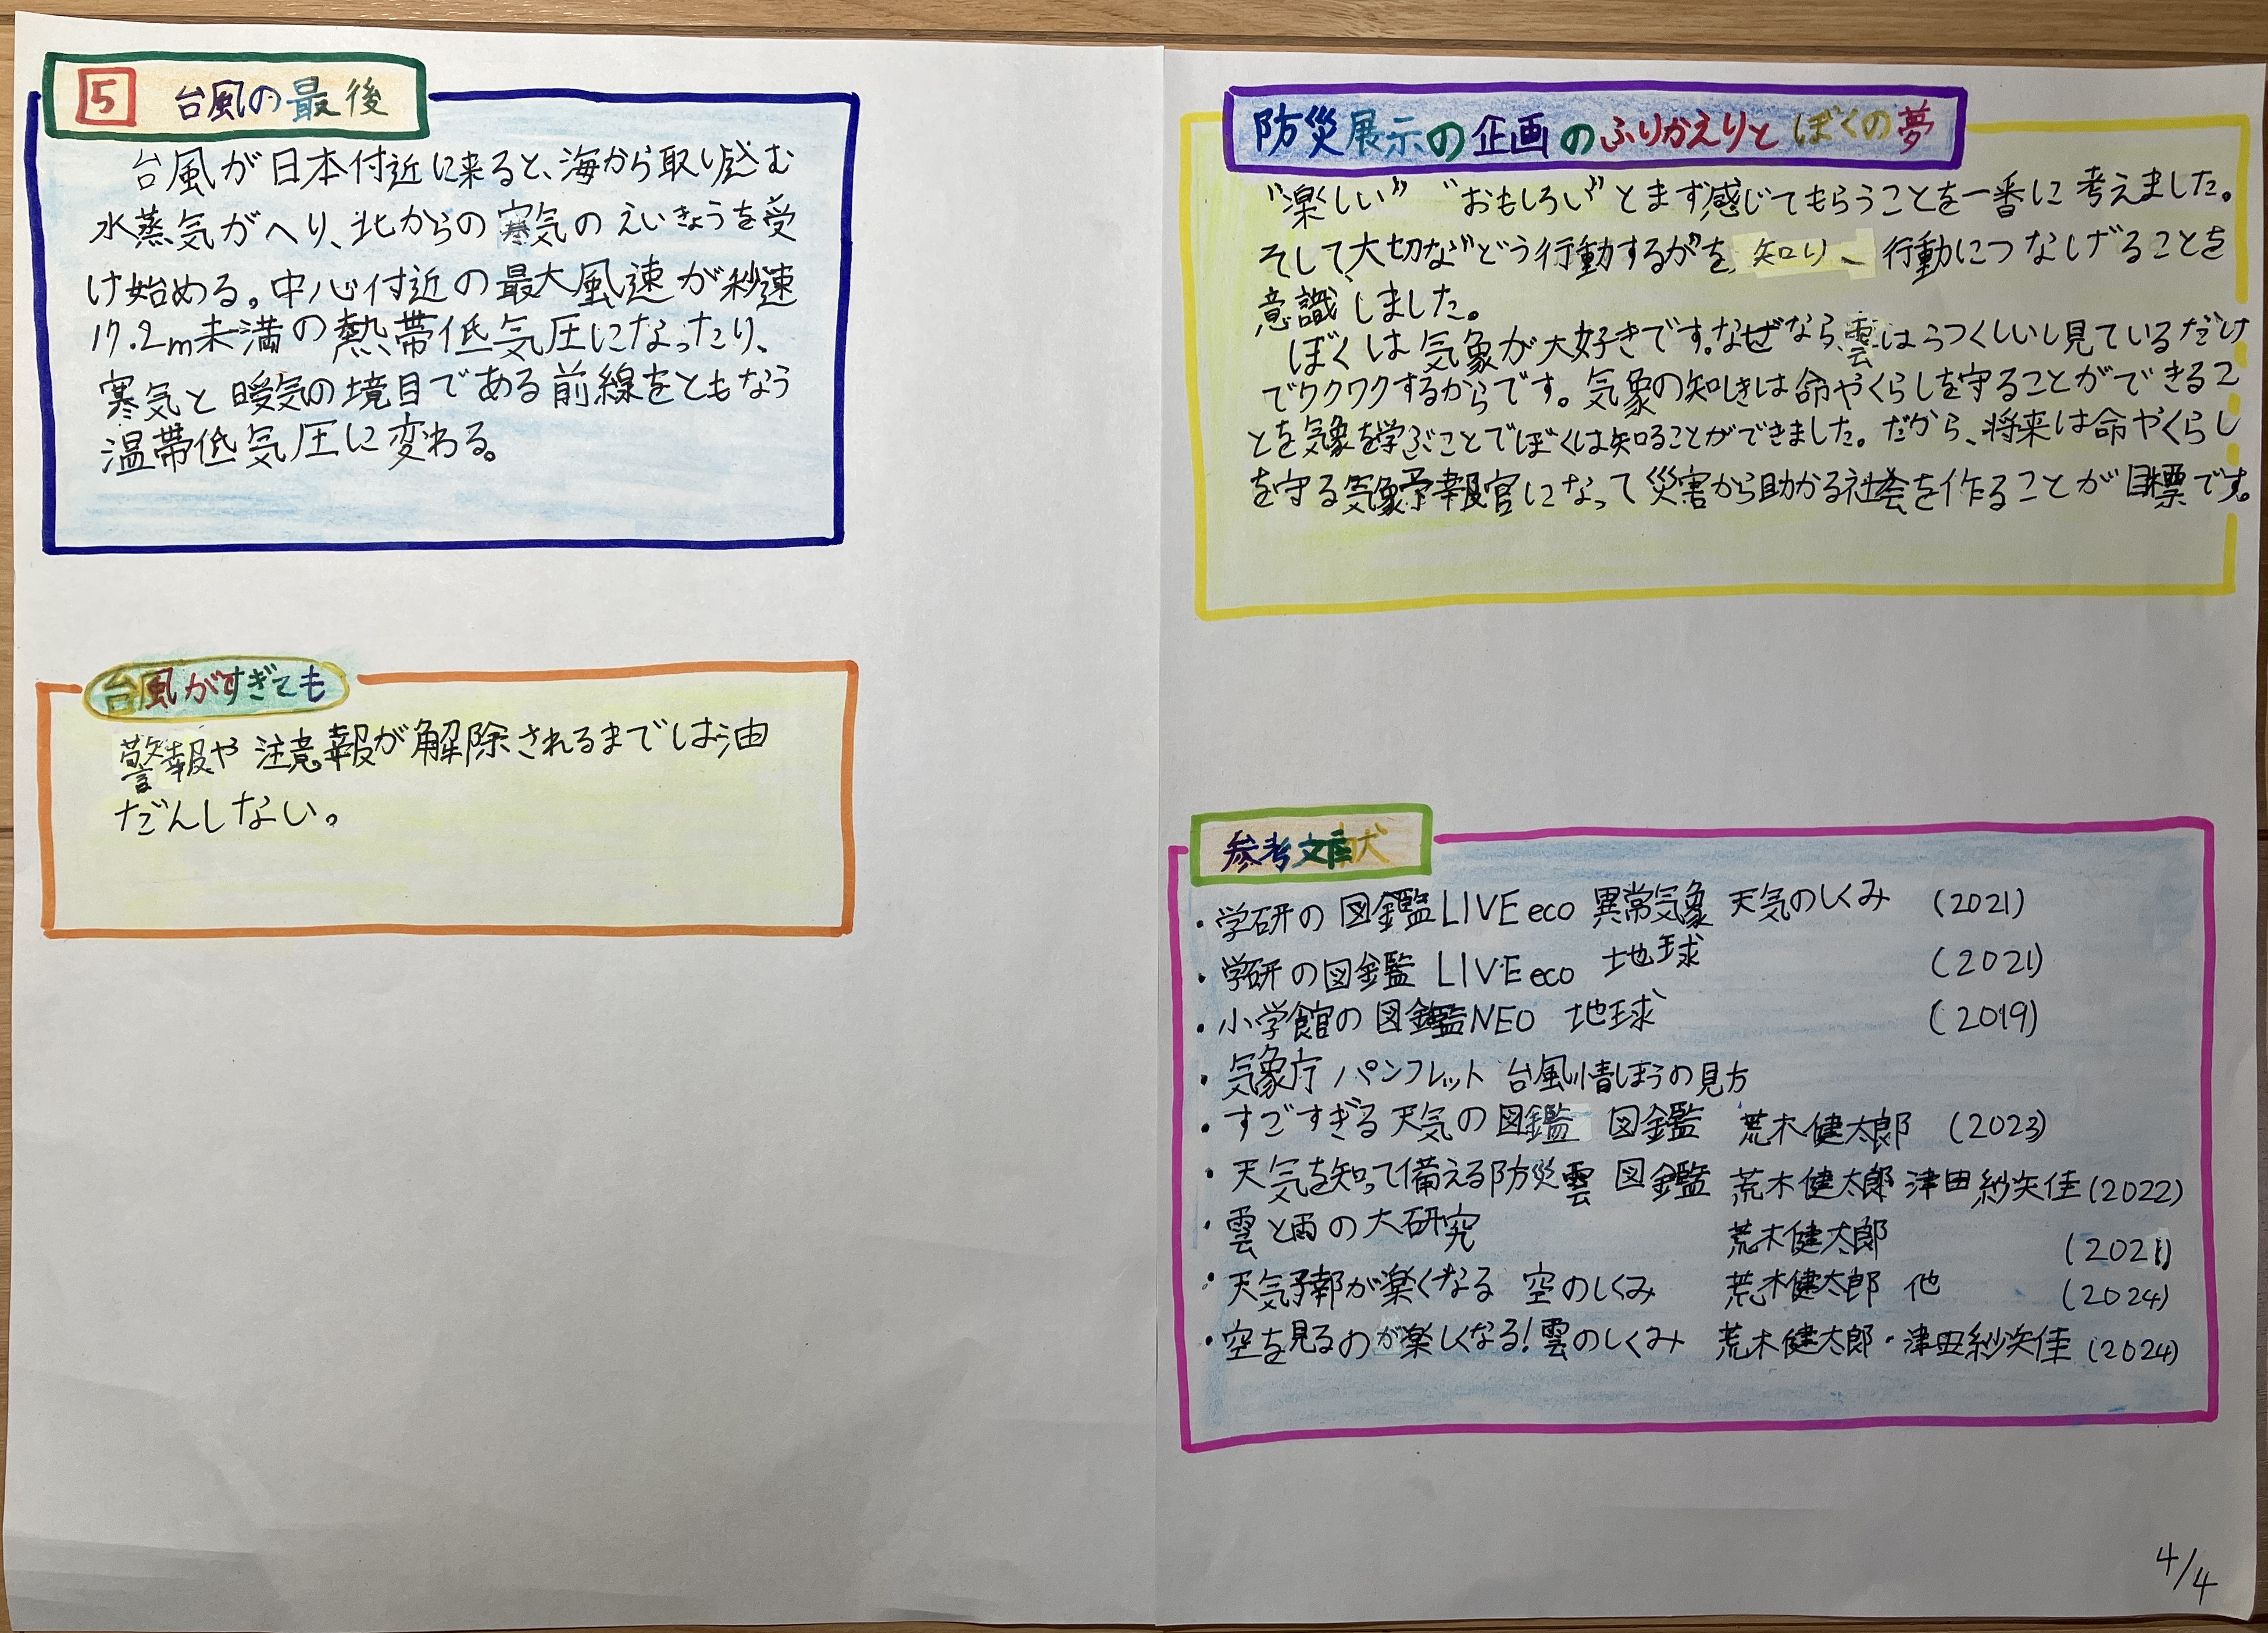 5 台風の最後
台風が日本付近に来ると、海から取り込む
水蒸気がへり、北からの寒気のえいきょうを受
け始める。中心付近の最大風速が秒速
17.2m未満の熱帯低気圧になったり、
寒気と暖気の境目である前線をともなう
温帯低気圧に変わる。
台風がすぎても
警報や注意報が解除されるまでは油
だんしない。
防災展示の企画のふりかえりとぼくの夢
"楽しい" "おもしろい"とまず感じてもらうことを一番に考えました。
そして、大切な"どう行動するか"を知り、行動につなげることを
意識しました。
ぼくは気象が大好きです。なぜなら、雲はうつくしいし見ているだけ
でワクワクするからです。気象の知しきは命やくらしを守ることができるこ
とを気象を学ぶことでぼくは知ることができました。だから、将来は命やくらし
を守る気象予報官になって災害から助かる社会を作ることが目標です。
参考文献
・学研の図鑑LIVE eco 異常気象 天気のしくみ (2021)
・学研の図鑑 LIVE eco 地球 (2021)
・小学館の図鑑NEO 地球 (2019)
・気象庁 パンフレット 台風情ほうの見方
・すごすぎる天気の図鑑 図鑑 荒木健太郎 (2023)
・天気を知って備える防災雲 図鑑 荒木健太郎 津田紗矢佳 (2022)
・雲と雨の大研究 荒木健太郎 (2021)
・天気予報が楽くなる 空のしくみ 荒木健太郎 他 (2024)
・空を見るのが楽しくなる!雲のしくみ 荒木健太郎・津田紗矢佳 (2024)
4/4